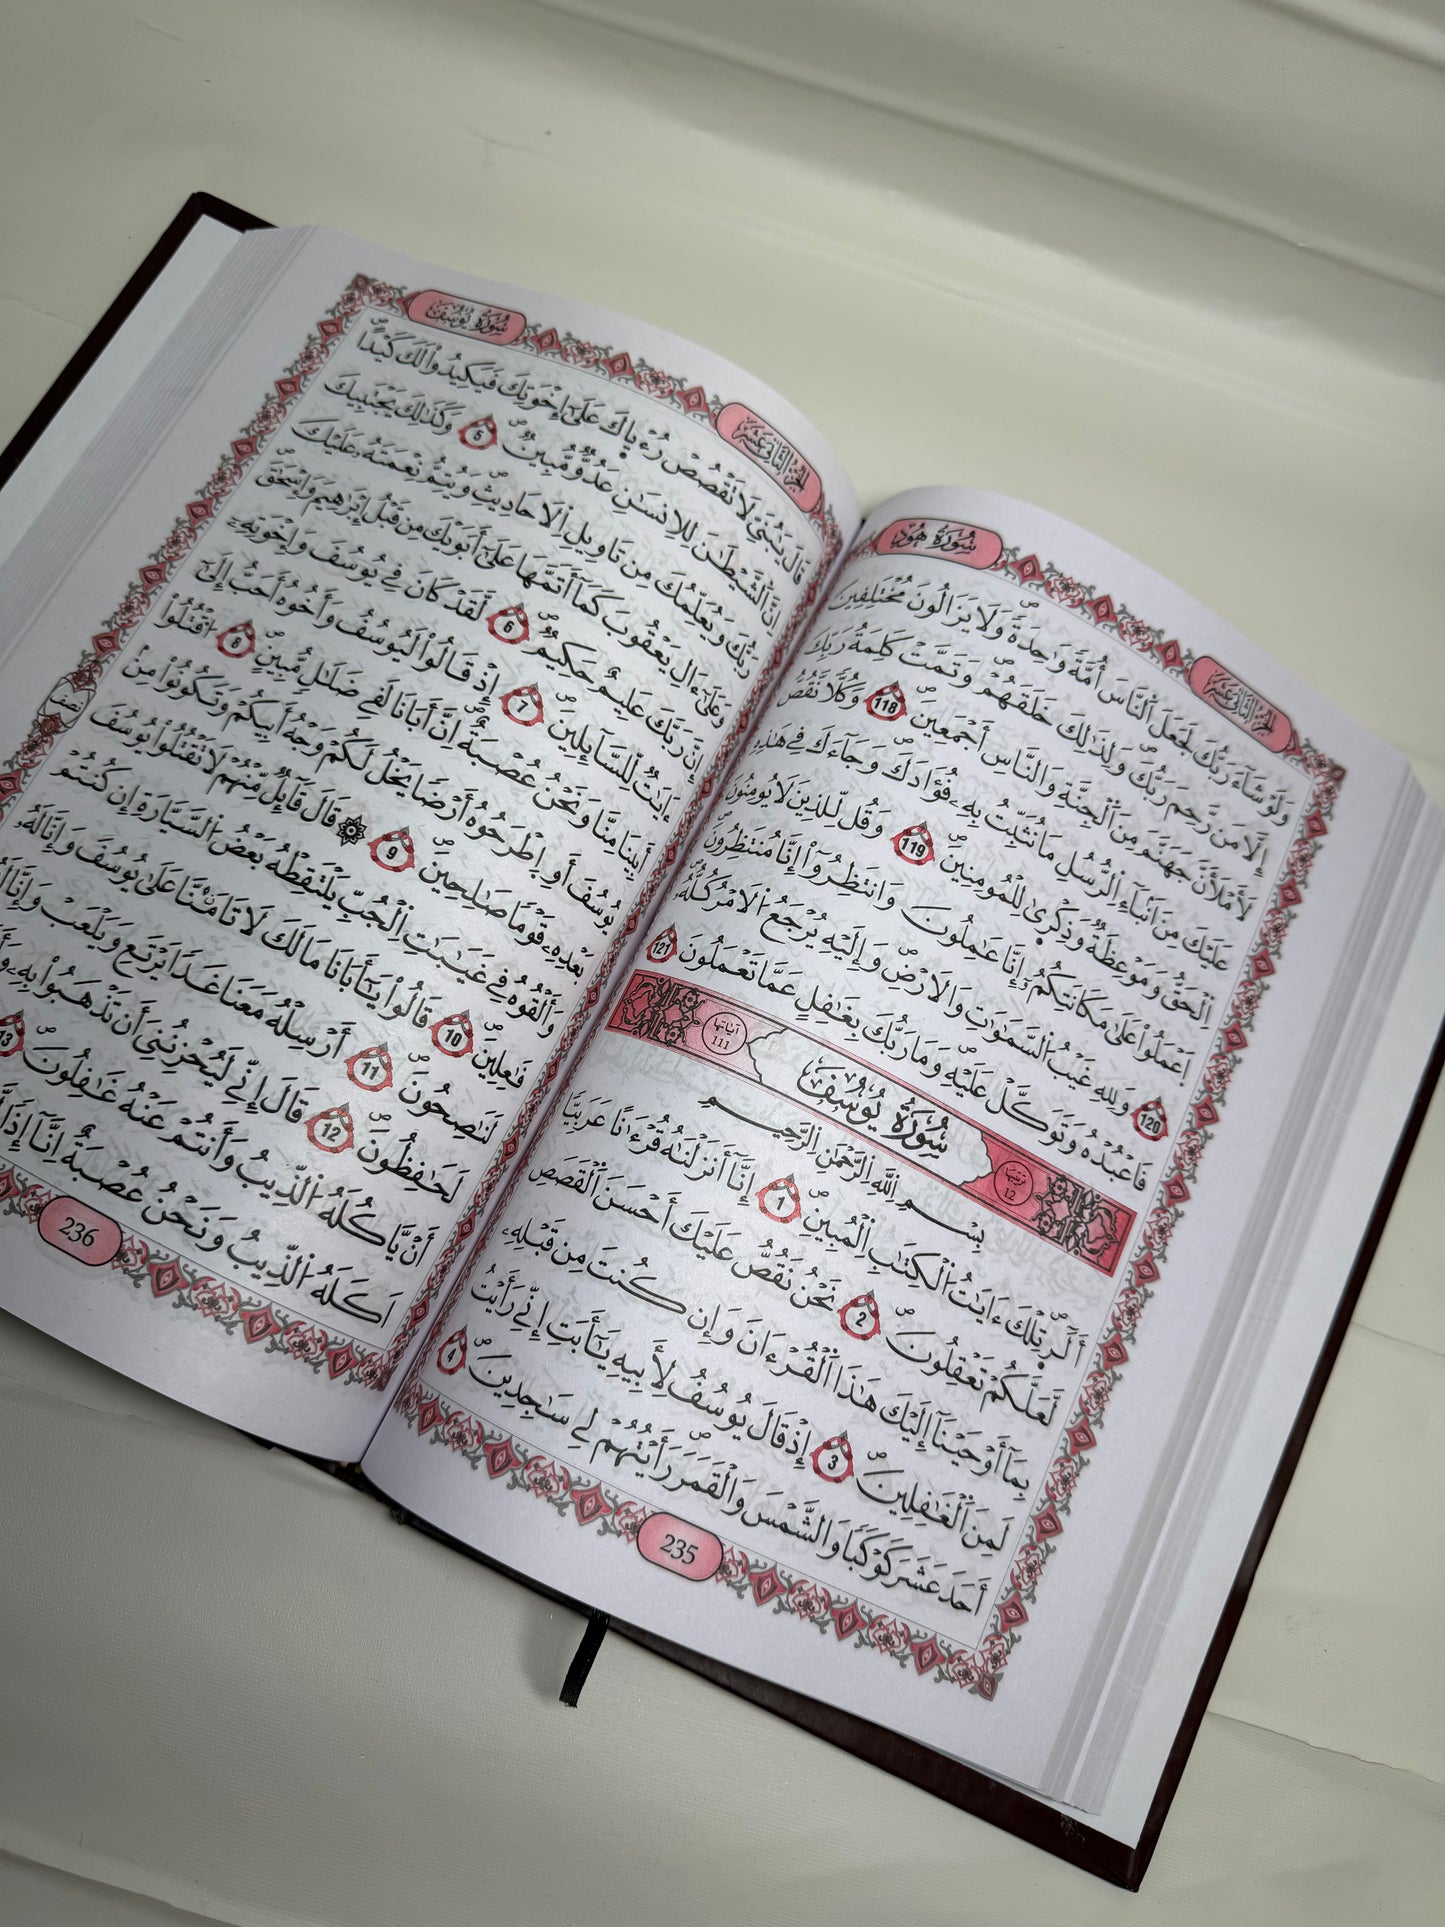 سُورَةُ هُودٍ
الجزء الثاني عشر
وَلَوْ شَآءَ رَبُّكَ لَجَعَلَ اَ۬لنَّاسَ أُمَّةٗ وَٰحِدَةٗۖ وَلَا يَزَالُونَ مُخْتَلِفِينَ
إِلَّا مَن رَّحِمَ رَبُّكَۖ وَلِذَٰلِكَ خَلَقَهُمْۖ وَتَمَّتْ كَلِمَةُ رَبِّكَ
لَأَمْلَأَنَّ جَهَنَّمَ مِنَ اَ۬لْجِنَّةِ وَالنَّاسِ أَجْمَعِينَۖ 118 وَكُلّٗا نَّقُصُّ
عَلَيْكَ مِنَ اَنۢبَآءِ اِ۬لرُّسُلِ مَا نُثَبِّتُ بِهِۦ فُؤَادَكَ وَجَآءَكَ فِے هَٰذِهِ
اِ۬لْحَقُّ وَمَوْعِظَةٞ وَذِكْر۪يٰ لِلْمُومِنِينَۖ 119 وَقُل لِّلذِينَ لَا يُومِنُونَ
اَ۪عْمَلُواْ عَلَيٰ مَكَانَتِكُمُۥٓ إِنَّا عَٰمِلُونَ وَانتَظِرُوٓاْ إِنَّا مُنتَظِرُونَۖ
120 وَلِلهِ غَيْبُ اُ۬لسَّمَٰوَٰتِ وَالَارْضِۖ وَإِلَيْهِ يَرْجِعُ اُ۬لَامْرُ كُلُّهُۥ
فَاعْبُدْهُ وَتَوَكَّلْ عَلَيْهِۖ وَمَا رَبُّكَ بِغَٰفِلٍ عَمَّا تَعْمَلُونَۖ 121
ترتيبها 12 سُورَةُ يُوسُفَ آياتها 111
بِسْمِ اِ۬للَّهِ اِ۬لرَّحْمَٰنِ اِ۬لرَّحِيمِ
أَلَٓر۪ۖ تِلْكَ ءَايَٰتُ اُ۬لْكِتَٰبِ اِ۬لْمُبِينِۖ 1 إِنَّآ أَنزَلْنَٰهُ قُرْءَٰناً عَرَبِيّاٗ
لَّعَلَّكُمْ تَعْقِلُونَۖ 2 نَحْنُ نَقُصُّ عَلَيْكَ أَحْسَنَ اَ۬لْقَصَصِ
بِمَآ أَوْحَيْنَآ إِلَيْكَ هَٰذَا اَ۬لْقُرْءَانَ وَإِن كُنتَ مِن قَبْلِهِۦ
لَمِنَ اَ۬لْغَٰفِلِينَۖ 3 إِذْ قَالَ يُوسُفُ لِأَبِيهِ يَٰٓأَبَتِ إِنِّے رَأَيْتُ
أَحَدَ عَشَرَ كَوْكَباٗ وَالشَّمْسَ وَالْقَمَرَ رَأَيْتُهُمْ لِے سَٰجِدِينَۖ 4
235
سُورَةُ يُوسُفَ
الجزء الثاني عشر
قَالَ يَٰبُنَيِّ لَا تَقْصُصْ رُءْي۪اكَ عَلَيٰٓ إِخْوَتِكَ فَيَكِيدُواْ لَكَ كَيْداًۖ
اِنَّ اَ۬لشَّيْطَٰنَ لِلِانسَٰنِ عَدُوّٞ مُّبِينٞۖ 5 وَكَذَٰلِكَ يَجْتَبِيكَ
رَبُّكَ وَيُعَلِّمُكَ مِن تَاوِيلِ اِ۬لَاحَادِيثِۖ وَيُتِمُّ نِعْمَتَهُۥ عَلَيْكَ
وَعَلَيٰٓ ءَالِ يَعْقُوبَ كَمَآ أَتَمَّهَا عَلَيٰٓ أَبَوَيْكَ مِن قَبْلُ إِبْرَٰهِيمَ وَإِسْحَٰقَۖ
إِنَّ رَبَّكَ عَلِيمٌ حَكِيمٞۖ 6 لَّقَدْ كَانَ فِے يُوسُفَ وَإِخْوَتِهِۦٓ
ءَايَٰتٞ لِّلسَّآئِلِينَۖ 7 إِذْ قَالُواْ لَيُوسُفُ وَأَخُوهُ أَحَبُّ إِلَيٰٓ
أَبِينَا مِنَّا وَنَحْنُ عُصْبَةٌۖ اِنَّ أَبَانَا لَفِے ضَلَٰلٖ مُّبِينٍۖ 8 اُ۟قْتُلُواْ
يُوسُفَ أَوِ اِ۪طْرَحُوهُ أَرْضاٗ يَخْلُ لَكُمْ وَجْهُ أَبِيكُمْ وَتَكُونُواْ مِنۢ
بَعْدِهِۦ قَوْماٗ صَٰلِحِينَۖ 9 ۞ قَالَ قَآئِلٞ مِّنْهُمْ لَا تَقْتُلُواْ يُوسُفَ
وَأَلْقُوهُ فِے غَيَٰبَٰتِ اِ۬لْجُبِّ يَلْتَقِطْهُ بَعْضُ اُ۬لسَّيَّارَةِ إِن كُنتُمْ
فَٰعِلِينَۖ 10 قَالُواْ يَٰٓأَبَانَا مَا لَكَ لَا تَامَ۬نَّا عَلَيٰ يُوسُفَ وَإِنَّا لَهُۥ
لَنَٰصِحُونَۖ 11 أَرْسِلْهُ مَعَنَا غَداٗ يَرْتَعِ وَيَلْعَبْ وَإِنَّا
لَحَٰفِظُونَۖ 12 قَالَ إِنِّے لَيُحْزِنُنِيَ أَن تَذْهَبُواْ بِهِۦ
أَنْ يَّاكُلَهُ اُ۬لذِّيبُ وَأَنتُمْ عَنْهُ غَٰفِلُونَۖ 13
اَكَلَهُ اُ۬لذِّيبُ وَنَحْنُ عُصْبَةٌ اِنَّآ إِذاٗ
نصف
236